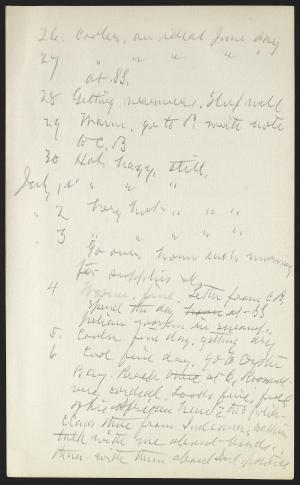 26: Cooler, an ideal June day
27 " " " " "
at SS.
28 Getting warmer, Sleep well
29 Warm, go to P. write note
to C. B
30 Hot, hazy, still,
July 1st " " "
" 2 Very hot " " "
" 3 " " " " "
Go over home each morning
for supplies &c
4 Warm, fine, Letter from C.B.
Spend the day at SS
Julian working in swamp.
5. Cooler, fine day, getting dry
6 Cool fine day, go to Oyster
Bay. Reach at 6, Roosevelt
very cordial, looks fine, full
of his African hunt & his
time
talk with me about birds,
then with them about